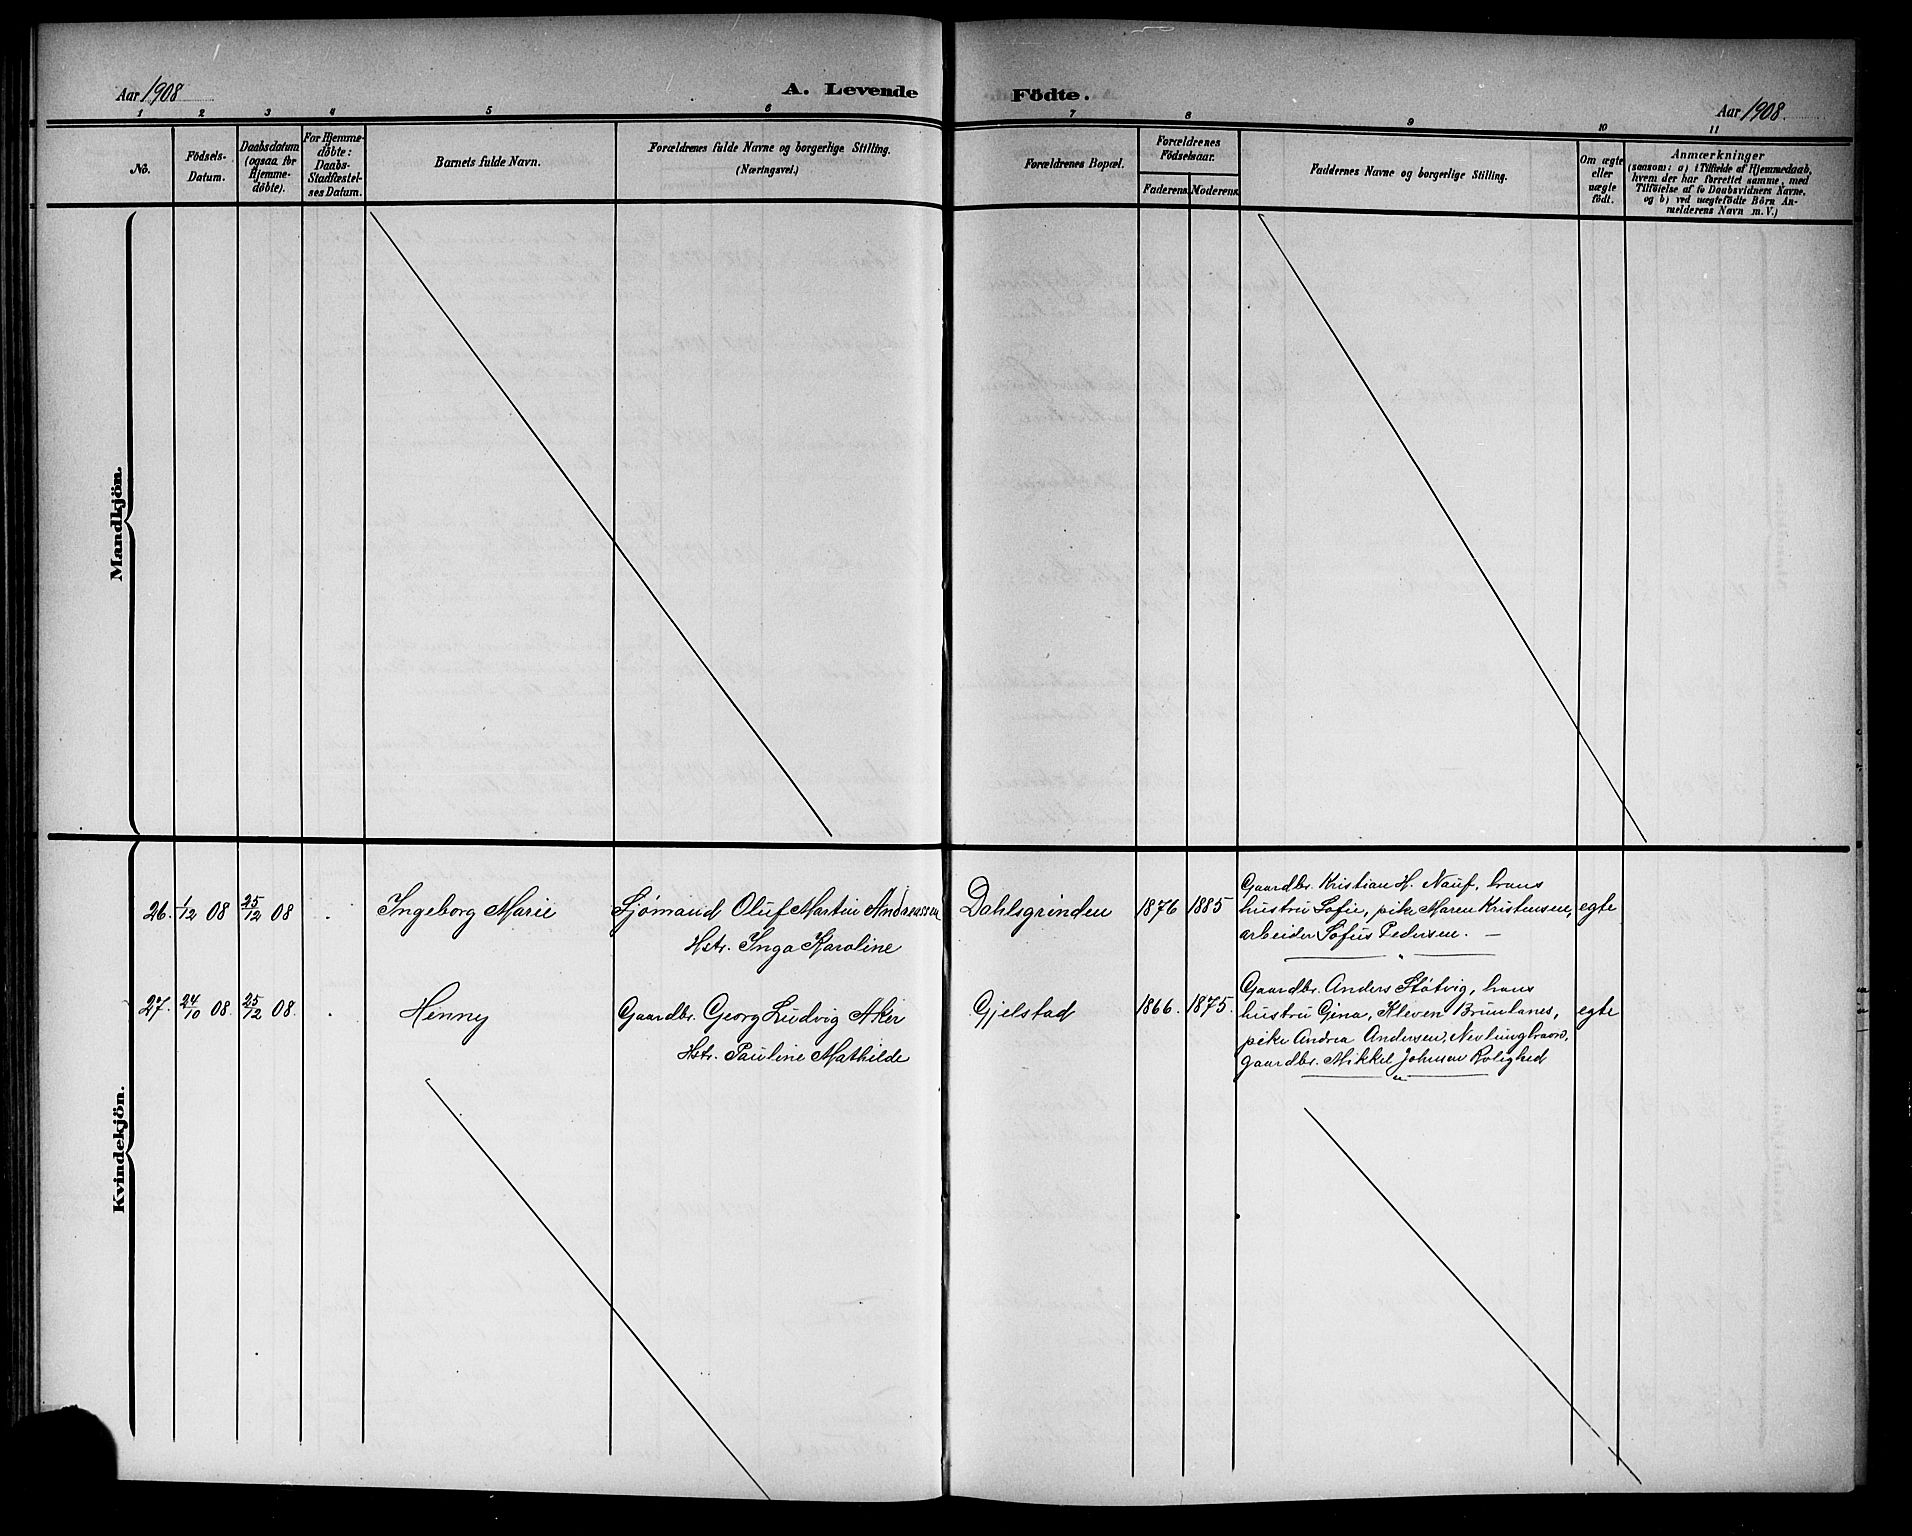 Aar 1908
A. Levende Födte.
Aar 1908.
1 2 3 4 5 6 7 8 9 10 11
No.
Födsels-
Datum.
Daabsdatum
(ogsaa for
Hjemme-
döbte).
For Hjemme-
döbte:
Daabs-
Stadfæstel-
ses Datum.
Barnets fulde Navn.
Forældrenes fulde Navne og borgerlige Stilling.
(Næringsvei.)
Forældrenes Bopæl.
Forældrenes
Födselsaar.
Faderens. Moderens.
Faddernes Navne og borgerlige Stilling.
Om ægte
eller
uægte
født.
Anmærkninger
(saasom: a) i Tilfælde af Hjemmedaab,
hvem der har forrettet samme, med
Tilföielse af to Daabsvidners Navne.
og b) ved uægtefödte Börn An-
melderens Navn m. V.)
Mandkjön.
Kvindekjön.
26. 1/12 08 25/12 08 Ingeborg Marie Sjömand Oluf Martin Andreassen Dahlsgrinden 1876 1885 egte
Hstr. Inga Karoline
Gaardbr. Kristian H. Nauf, hans
hustru Sofie, pike Maren Kristensen,
arbeider Sofus Pedersen. —
27. 24/10 08. 25/12 08. Henny Gaardbr. Georg Ludvig Aker Gjelstad 1866. 1875. egte
Hstr. Pauline Mathilde
Gaardbr. Anders Stötvig, hans
hustru Gina, Kleven Brunlanes,
pike Andrea Andersen, Nevlunghavn,
gaardbr. Mikkel Johnsen Rolighed